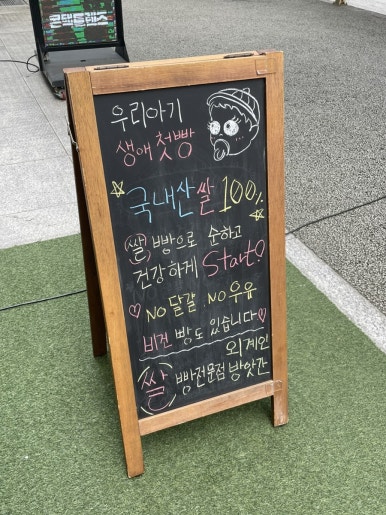 콘택트렌즈
우리아기
생애 첫빵
국내산 쌀 100%
쌀 빵으로 순하고
건강하게 Start?
NO 달걀 NO 우유
비건 빵도 있습니다
외계인
쌀 빵전문점 방앗간